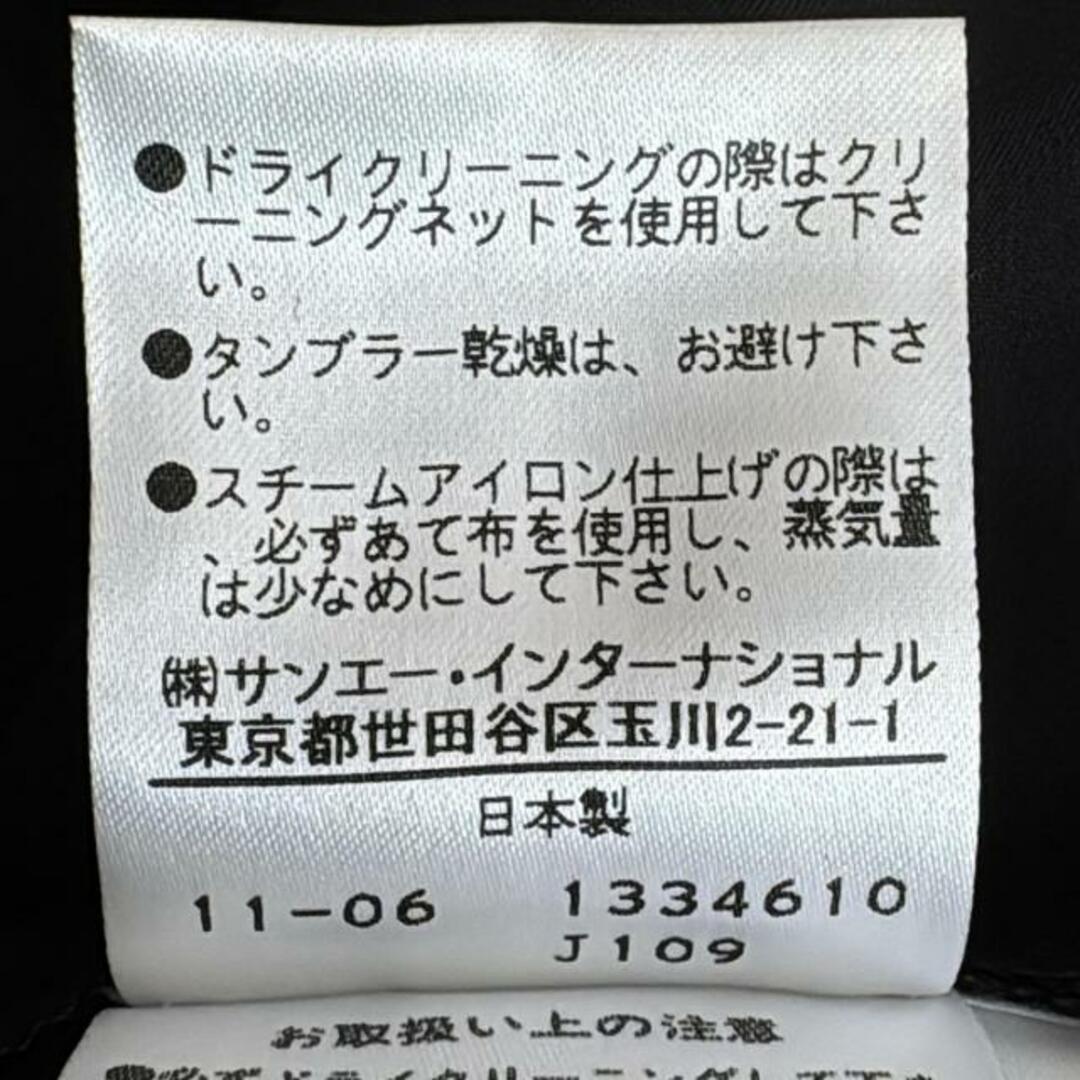 ●ドライクリーニングの際はクリ
ーニングネットを使用して下さ
い。
●タンブラー乾燥は、お避け下さ
い。
●スチームアイロン仕上げの際は
、必ずあて布を使用し、蒸気量
は少なめにして下さい。
㈱サンエー・インターナショナル
東京都世田谷区玉川2-21-1
日本製
11-06 1334610
J109
お取扱い上の注意
ドライクリーニングして下さ